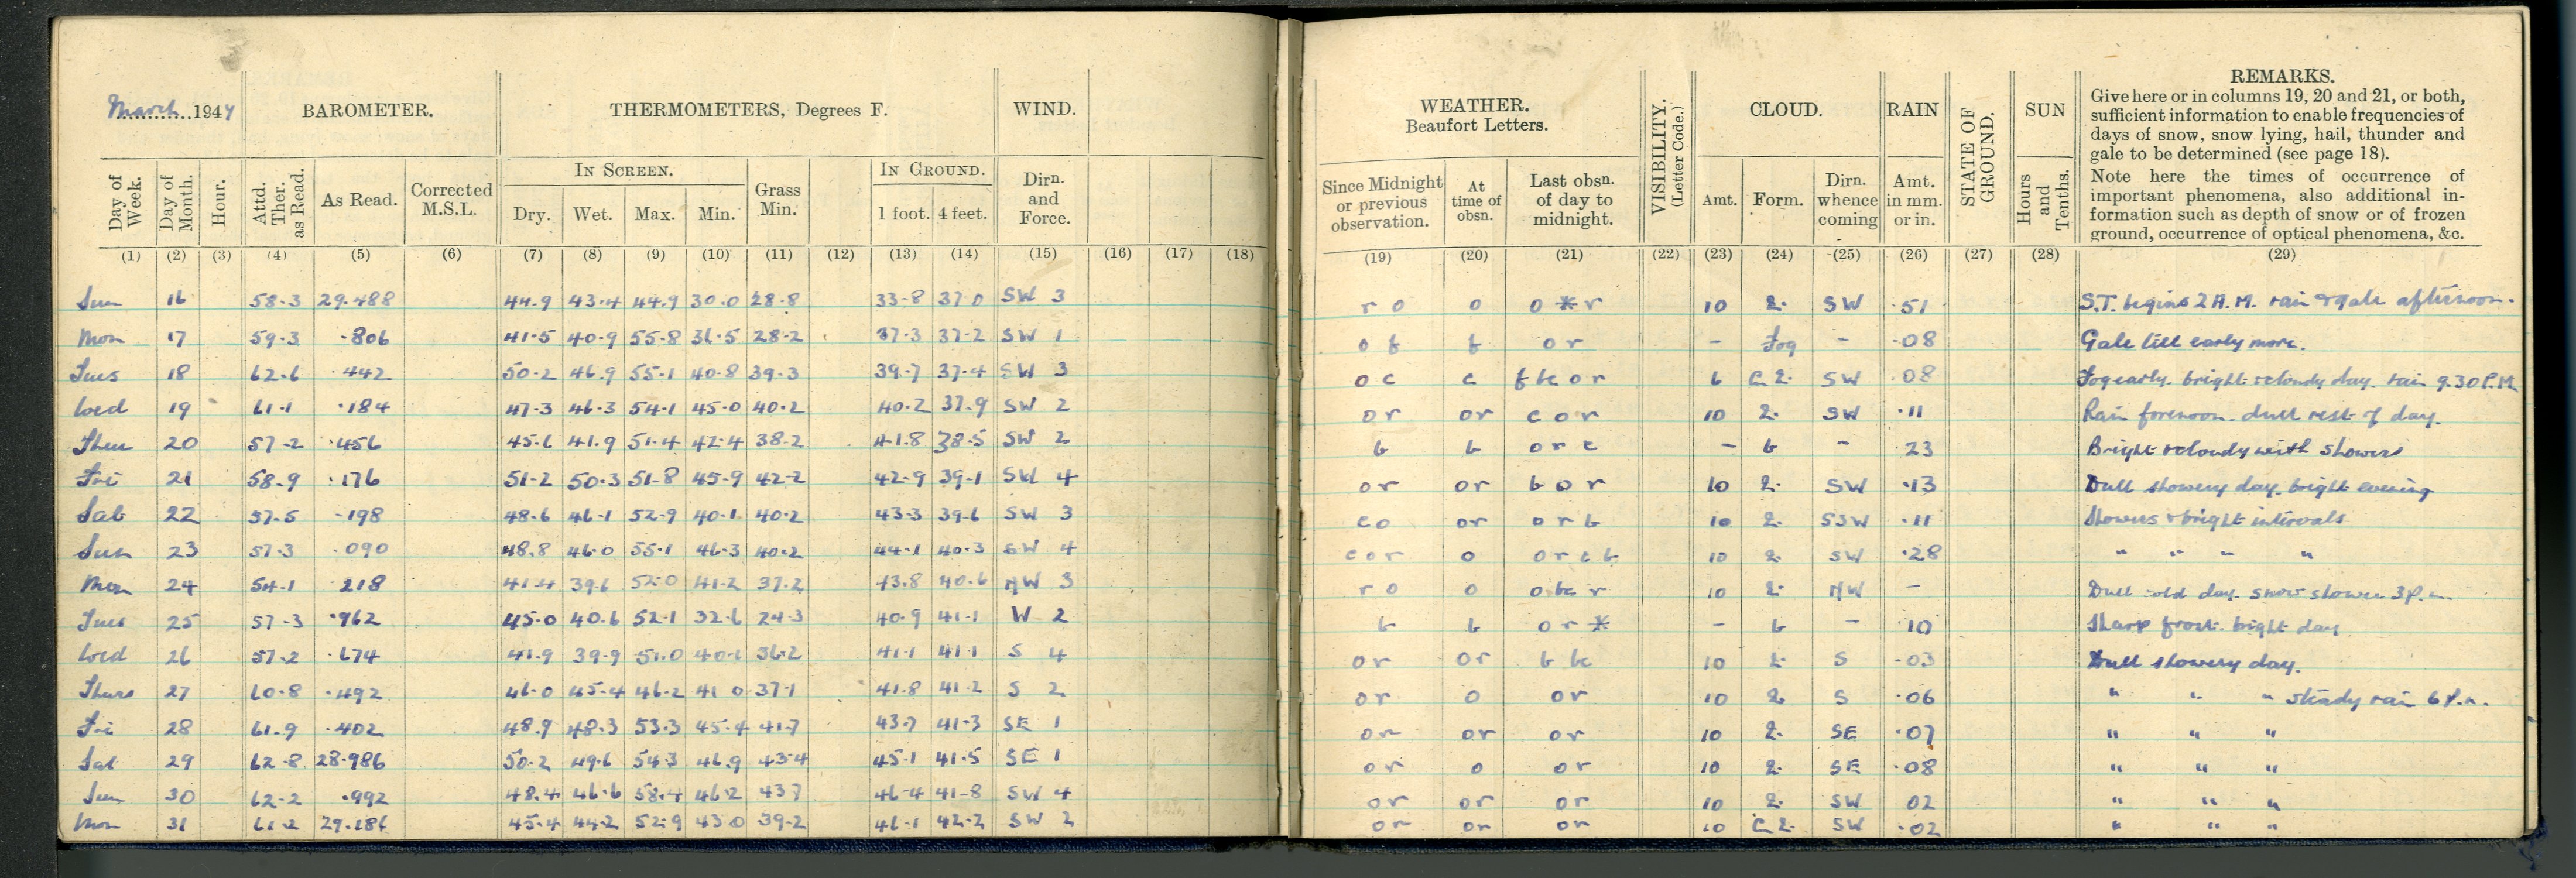 March 1947
BAROMETER.
THERMOMETERS, Degrees F.
WIND.
WEATHER.
Beaufort Letters.
VISIBILITY.
(Letter Code.)
CLOUD.
RAIN
STATE OF
GROUND.
SUN
REMARKS.
Give here or in columns 19, 20 and 21, or both,
sufficient information to enable frequencies of
days of snow, snow lying, hail, thunder and
gale to be determined (see page 18).
Note here the times of occurrence of
important phenomena, also additional in-
formation such as depth of snow or of frozen
ground, occurrence of optical phenomena, &c.
Day of Week. Day of Month. Hour. Attd. Ther. as Read. As Read. Corrected M.S.L.
IN SCREEN. Dry. Wet. Max. Min. Grass Min. IN GROUND. 1 foot. 4 feet. Dirn. and Force.
Since Midnight or previous observation. At time of obsn. Last obsn. of day to midnight. Amt. Form. Dirn. whence coming Amt. in mm. or in. Hours and Tenths.
(1) (2) (3) (4) (5) (6) (7) (8) (9) (10) (11) (12) (13) (14) (15) (16) (17) (18) (19) (20) (21) (22) (23) (24) (25) (26) (27) (28) (29)
Sun 16 58.3 29.488 44.9 43.4 44.9 30.0 28.8 33.8 37.0 SW 3 r o o o * r 10 2. SW .51 S.T. begins 2 A.M. rain & gale afternoon.
Mon 17 59.3 .806 41.5 40.9 55.8 36.5 28.2 37.3 37.2 SW 1 o f f o r - Fog - .08 Gale till early morn.
Tues 18 62.6 .442 50.2 46.9 55.1 40.8 39.3 39.7 37.4 SW 3 o c c f bc o r 6 C 2. SW .08 Fog early. bright & cloudy day. rain 9.30 P.M.
Wed 19 61.1 .184 47.3 46.3 54.1 45.0 40.2 40.2 37.9 SW 2 o r o r c o r 10 2. SW .11 Rain forenoon. dull rest of day.
Thur 20 57.2 .456 45.6 41.9 51.4 42.4 38.2 41.8 38.5 SW 2 b b o r c - b - .23 Bright & cloudy with showers
Fri 21 58.9 .176 51.2 50.3 51.8 45.9 42.2 42.9 39.1 SW 4 o r o r b o r 10 2. SW .13 Dull showery day. bright evening
Sat 22 57.5 .198 48.6 46.1 52.9 40.1 40.2 43.3 39.6 SW 3 c o o r o r b 10 2. SSW .11 Showers & bright intervals
Sun 23 57.3 .090 48.8 46.0 55.1 46.3 40.2 44.1 40.3 SW 4 c o r o o r c b 10 2 SW .28 " " " "
Mon 24 54.1 218 41.4 39.6 52.0 41.2 37.2 43.8 40.6 NW 3 r o o o bc r 10 2. NW - Dull cold day. snow shower 3 P.m.
Tues 25 57.3 .962 45.0 40.6 52.1 32.6 24.3 40.9 41.1 W 2 b b o r * - b - .10 Sharp frost. bright day
Wed 26 57.2 .674 41.9 39.9 51.0 40.1 36.2 41.1 41.1 S 4 o r o r b bc 10 2 S .03 Dull showery day.
Thurs 27 60.8 .492 46.0 45.4 46.2 41.0 37.1 41.8 41.2 S 2 o r o o r 10 2 S .06 " " " steady rain 6 P.m.
Fri 28 61.9 .402 48.9 48.3 53.3 45.4 41.7 43.7 41.3 SE 1 o r o r o r 10 2. SE .07 " " "
Sat 29 62.8 28.986 50.2 49.6 54.3 46.9 43.4 45.1 41.5 SE 1 o r o o r 10 2. SE .08 " " "
Sun 30 62.2 .992 48.4 46.6 58.4 46.2 43.7 46.4 41.8 SW 4 o r o r o r 10 2. SW 02 " " "
Mon 31 61.2 29.186 45.4 44.2 52.9 43.0 39.2 46.1 42.2 SW 2 o r o r o r 10 C 2. SW .02 " " "